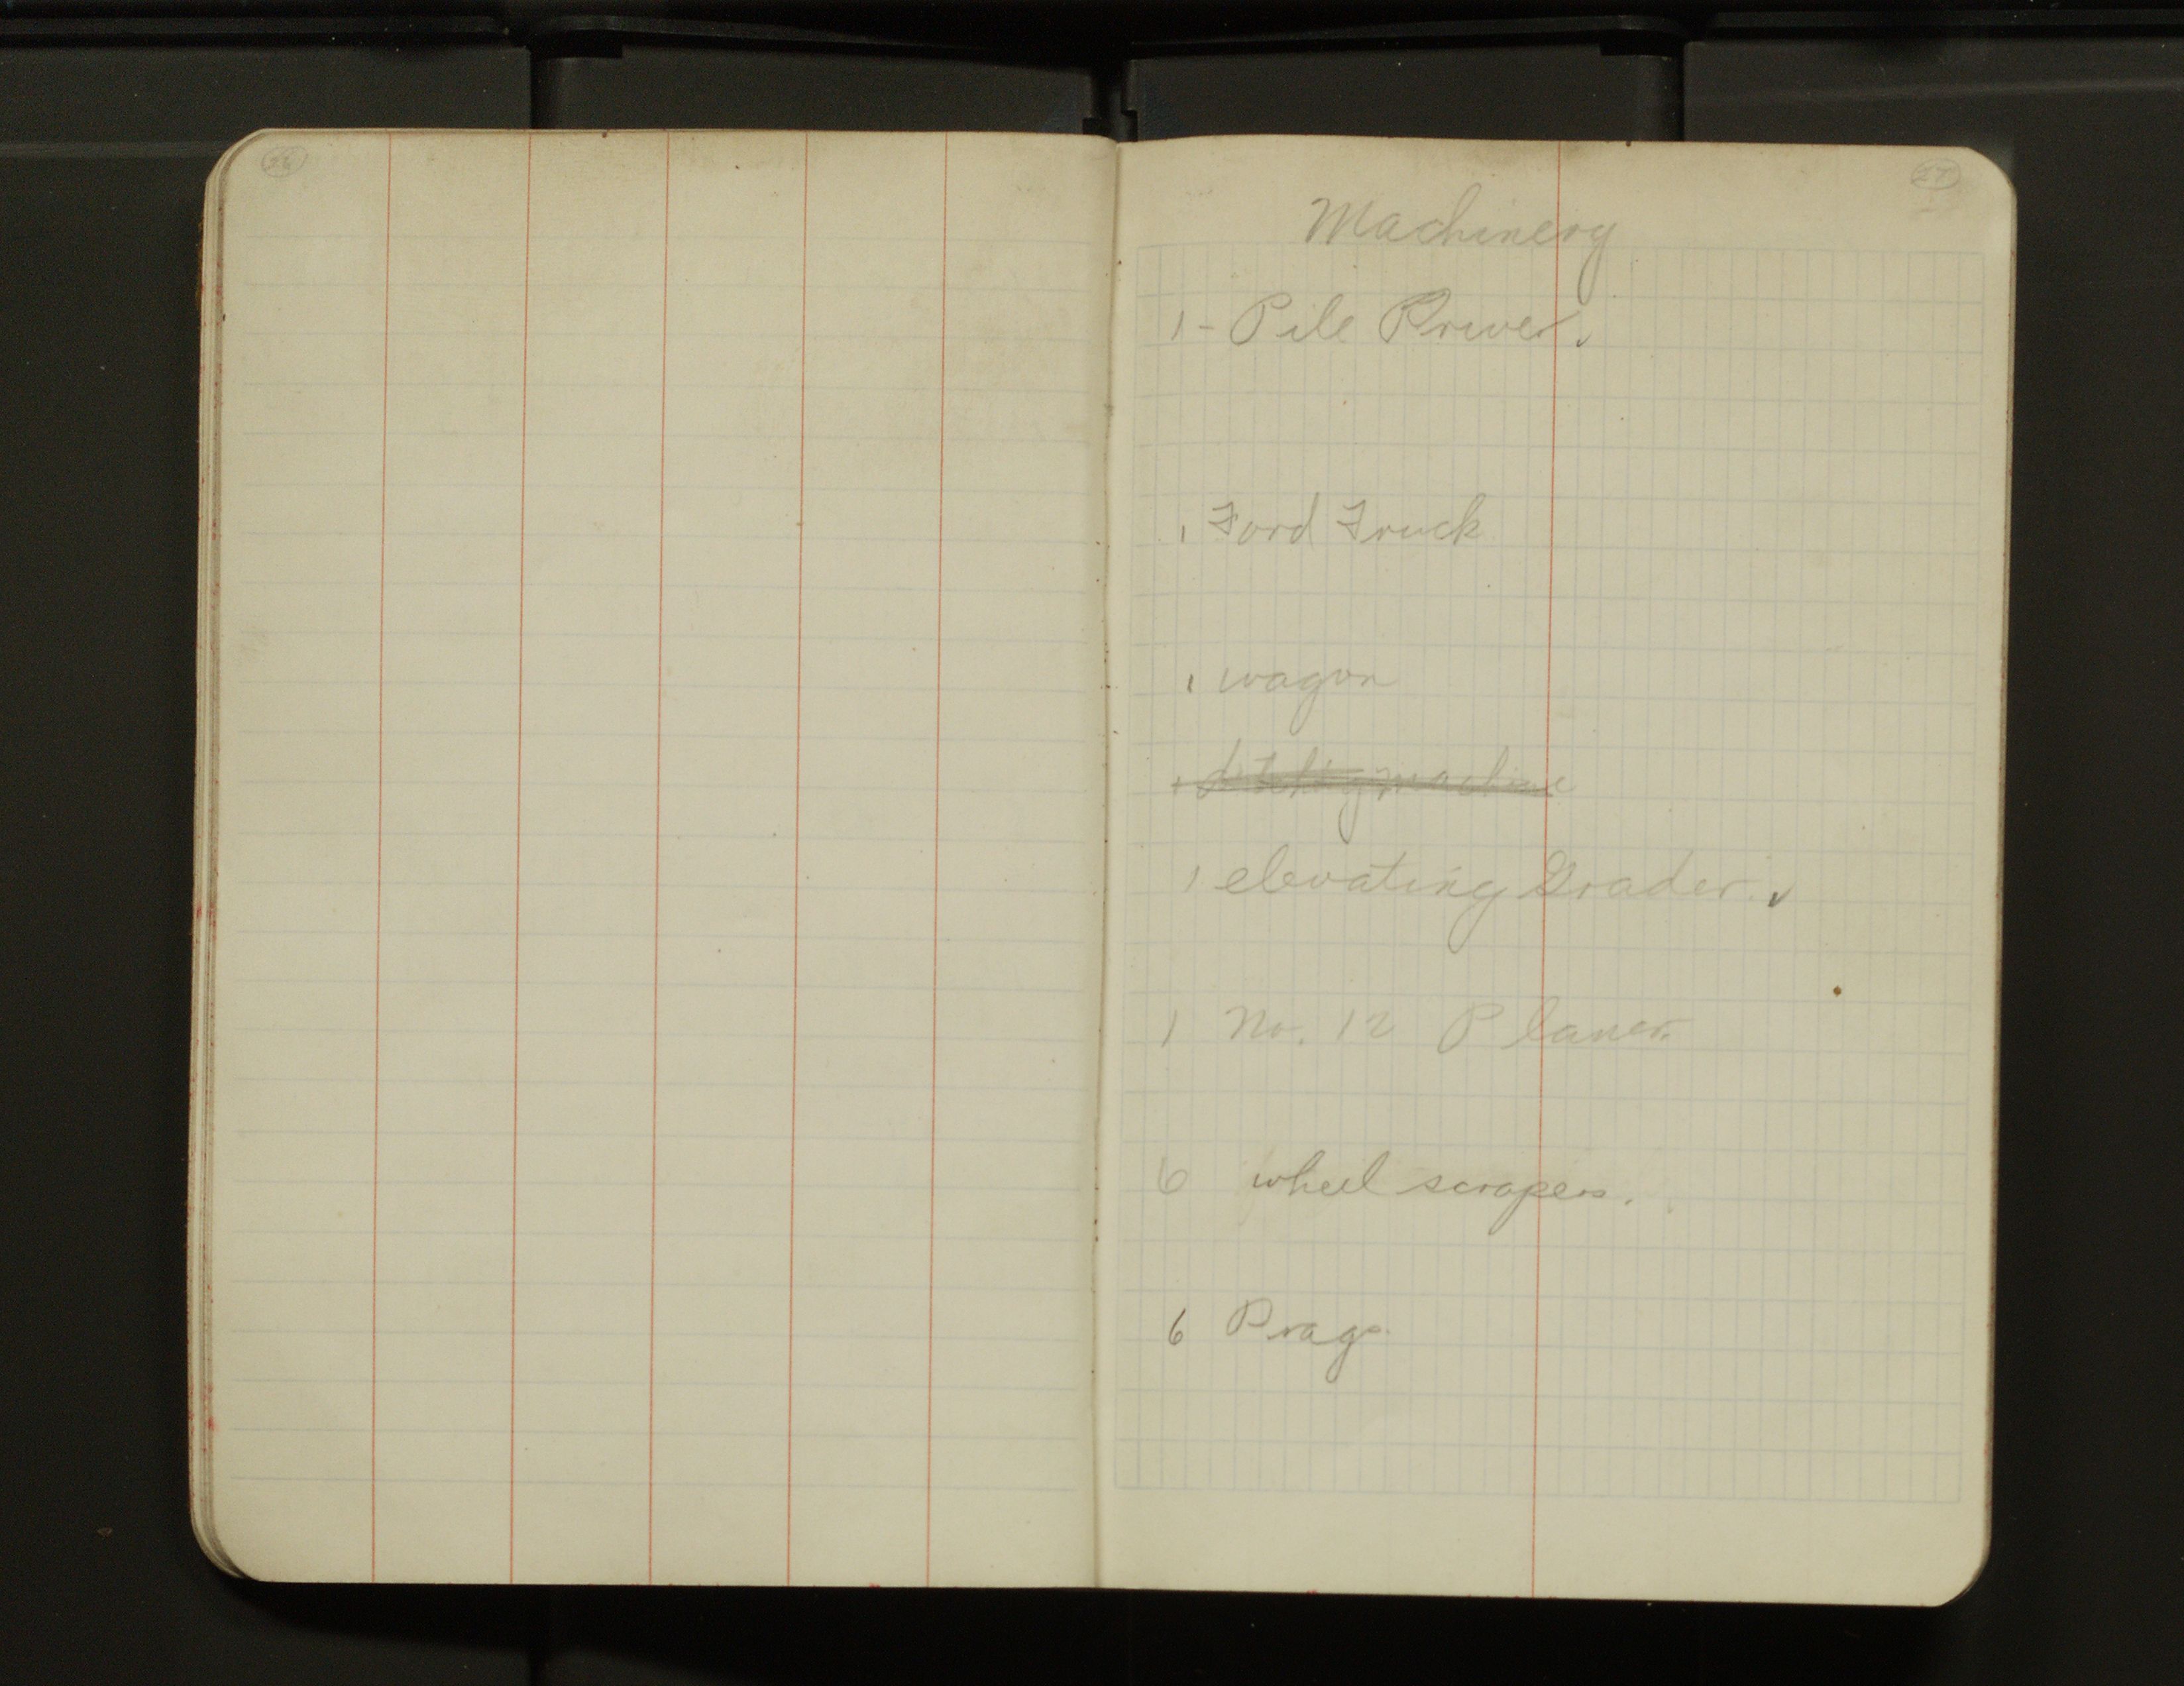 26
27
Machinery
1 - Pile Driver. ✓
1 Ford Truck
1 wagon
1 ditching machine
1 elevating Grader. ✓
1 No. 12 Planer.
6 wheel scrapers.
6 Drags.